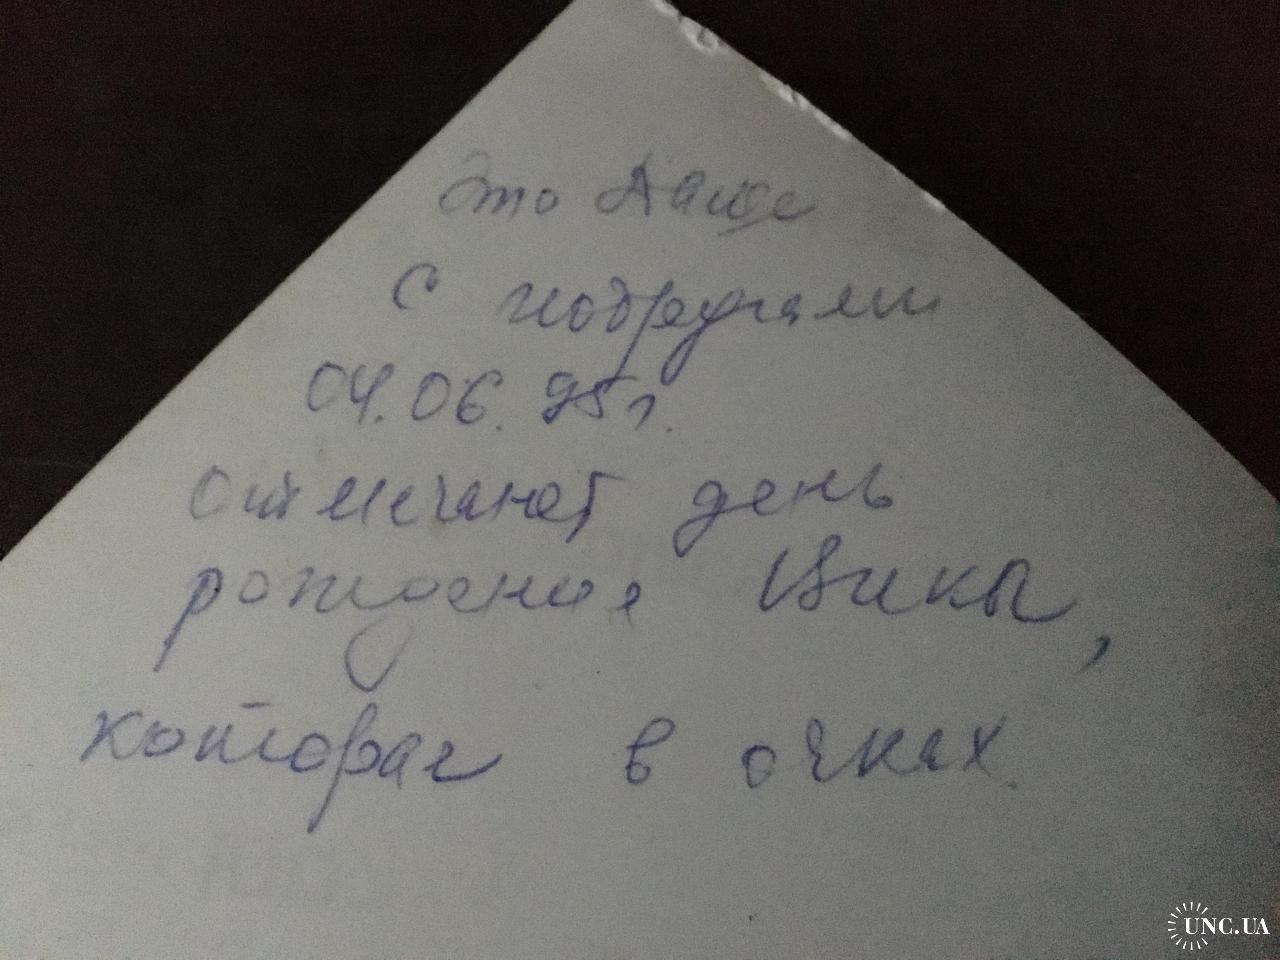 Это Даша
с подругами
04.06.95г.
отмечают день
рождения Вики,
которая в очках.
UNC.UA